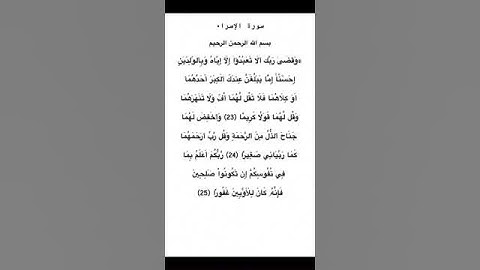 سورة الإسراء
بسم الله الرحمن الرحيم
۞وَقَضَى رَبُّكَ أَلَّا تَعْبُدُوٓاْ إِلَّآ إِيَّاهُ وَبِٱلْوَٰلِدَيْنِ
إِحْسَٰنًاۚ إِمَّا يَبْلُغَنَّ عِندَكَ ٱلْكِبَرَ أَحَدُهُمَآ
أَوْ كِلَاهُمَا فَلَا تَقُل لَّهُمَآ أُفٍّ وَلَا تَنْهَرْهُمَا
وَقُل لَّهُمَا قَوْلًا كَرِيمًا (23) وَٱخْفِضْ لَهُمَا
جَنَاحَ ٱلذُّلِّ مِنَ ٱلرَّحْمَةِ وَقُل رَّبِّ ٱرْحَمْهُمَا
كَمَا رَبَّيَانِي صَغِيرًا (24) رَّبُّكُمْ أَعْلَمُ بِمَا
فِي نُفُوسِكُمْۚ إِن تَكُونُواْ صَٰلِحِينَ
فَإِنَّهُۥ كَانَ لِلْأَوَّٰبِينَ غَفُورًا (25)